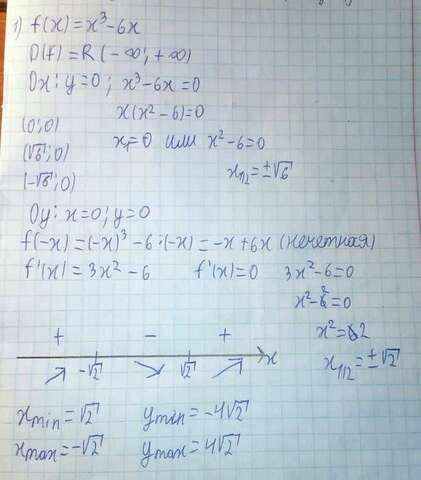 1) f(x) = x³ - 6x
D(f) = R (-∞; +∞)
Ox: y = 0; x³ - 6x = 0
x(x² - 6) = 0
(0; 0)
x = 0 или x² - 6 = 0
(√6; 0)
x₁/₂ = ±√6
(-√6; 0)
Oy: x = 0; y = 0
f(-x) = (-x)³ - 6 · (-x) = -x + 6x (нечетная)
f'(x) = 3x² - 6 f'(x) = 0 3x² - 6 = 0
x² - 2 = 0
x² = 2
x₁/₂ = ±√2
+ - +
-√2 √2 x
xmin = √2 ymin = -4√2
xmax = -√2 ymax = 4√2